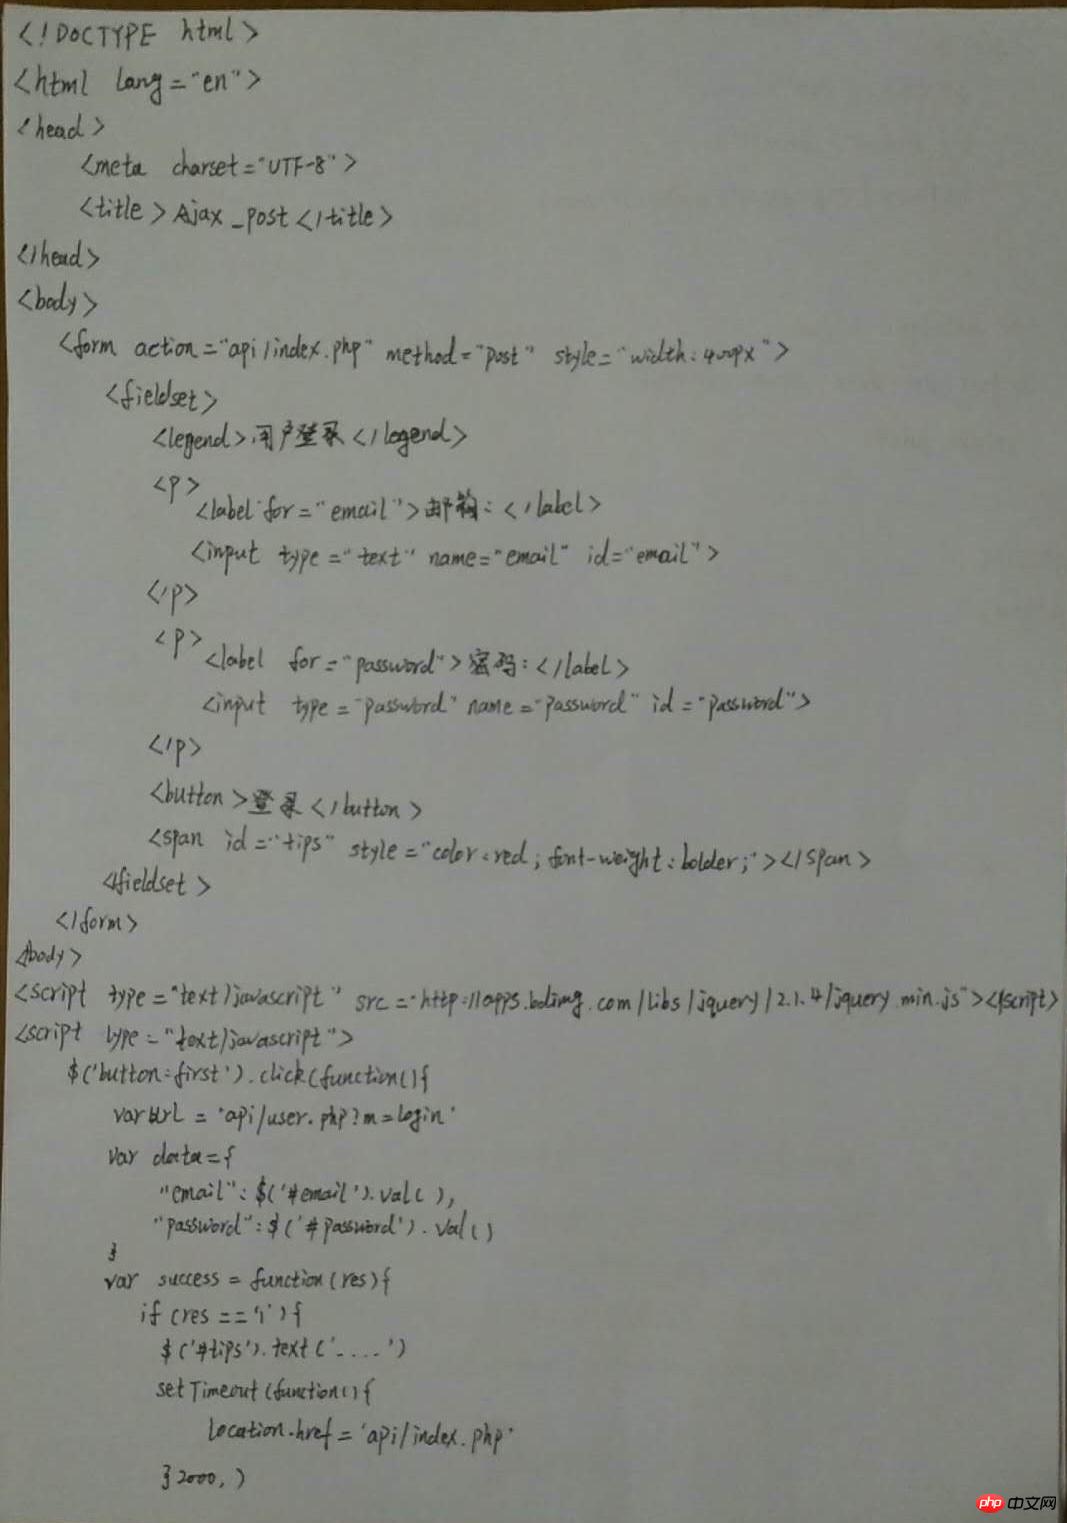 <!DOCTYPE html>
<html lang="en">
<head>
<meta charset="UTF-8">
<title>Ajax_post</title>
</head>
<body>
<form action="api/index.php" method="post" style="width:400px">
<fieldset>
<legend>用户登录</legend>
<p>
<label for="email">邮箱:</label>
<input type="text" name="email" id="email">
</p>
<p>
<label for="password">密码:</label>
<input type="password" name="password" id="password">
</p>
<button>登录</button>
<span id="tips" style="color:red;font-weight:bolder;"></span>
</fieldset>
</form>
</body>
<script type="text/javascript" src="http://apps.bdimg.com/libs/jquery/2.1.4/jquery.min.js"></script>
<script type="text/javascript">
$('button:first').click(function(){
var url = 'api/user.php?m=login'
var data={
"email":$('#email').val(),
"password":$('#password').val()
}
var success = function(res){
if (res == '1'){
$('#tips').text('....')
setTimeout(function(){
location.href = 'api/index.php'
}2000,)
php 中文网